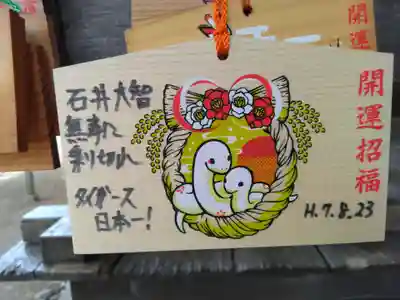 石井大智
無事に
乗り切れ
タイガース
日本一!
開運招福
H.7.8.23